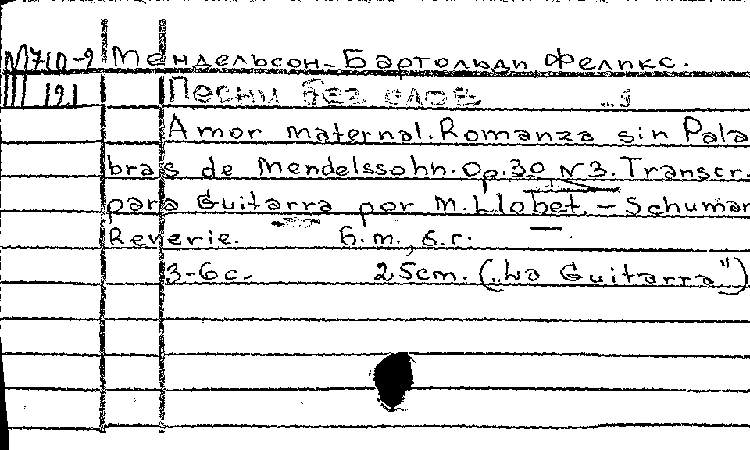 М710-9 Мендельсон-Бартольди Феликс.
III 191 Песни без слов
Amor maternal. Romanza sin Pala
bras de Mendelssohn. Op. 30 N 3. Transcr.
para Guitarra por M. Llobet. – Schuman
Reverie. Б.м., б.г.
3-6 с. 25 cm. („La Guitarra")